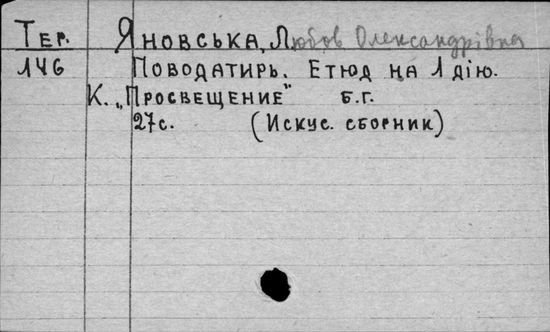 Тер. Яновська, Любов Олександрівна
146 Поводатирь. Етюд на 1 дію.
К. „Просвещение" б.г.
27с. (Искус. сборник)